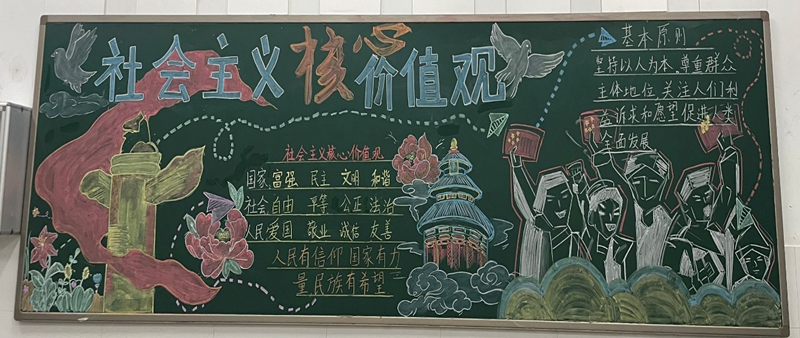 社会主义核心价值观
社会主义核心价值观
国家 富强 民主 文明 和谐
社会 自由 平等 公正 法治
人民 爱国 敬业 诚信 友善
人民有信仰 国家有力
量 民族有希望
基本原则
坚持以人为本 尊重群众
主体地位 关注人们利
益诉求和愿望 促进人类
全面发展